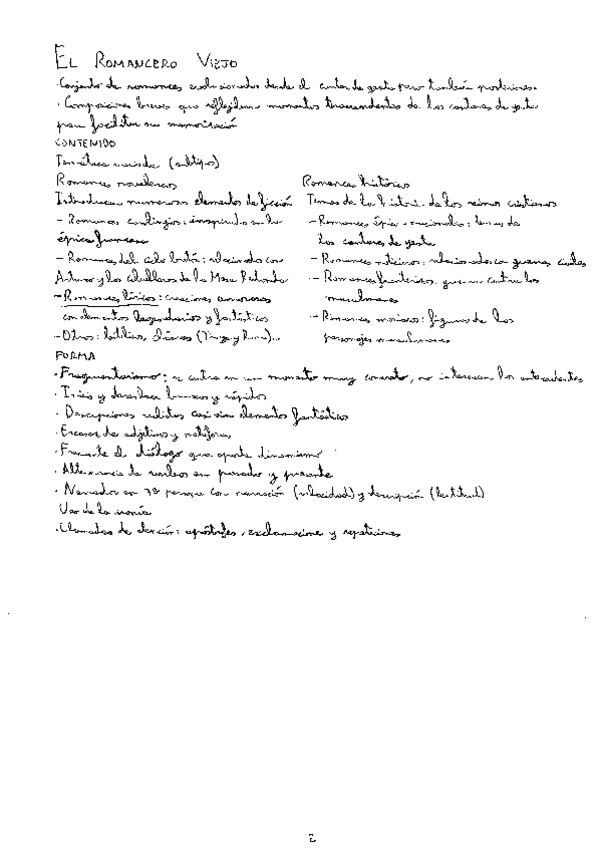 EL ROMANCERO VIEJO
· Conjunto de romances evolucionados desde el cantar de gesta pero también posteriores.
· Composiciones breves que reflejan momentos trascendentes de los cantares de gesta
para facilitar su memorización
CONTENIDO
Temática variada (subtipos)
Romances novelescos
Introducen numerosos elementos de ficción
- Romances carolingios: inspirados en la
épica francesa
- Romances del ciclo bretón: relacionados con
Arturo y los caballeros de la Mesa Redonda
- Romances líricos: creaciones amorosas
con elementos legendarios y fantásticos
- Otros: bíblicos, clásicos (Troya y Roma)...
Romances históricos
Temas de la historia de los reinos cristianos
- Romances épico-nacionales: temas de
los cantares de gesta
- Romances noticieros: relacionados con guerras civiles
- Romances fronterizos: guerra contra los
musulmanes
- Romances moriscos: figuras de los
personajes musulmanes
FORMA
· Fragmentarismo: se centra en un momento muy concreto, no interesan los antecedentes
· Inicio y desenlace bruscos y rápidos
· Descripciones realistas casi sin elementos fantásticos
· Escasez de adjetivos y metáforas
· Frecuente el diálogo que aporta dinamismo
· Alternancia de verbos en pasado y presente
· Narrador en 3ª persona con narración (velocidad) y descripción (lentitud)
Uso de la ironía
· Llamadas de atención: apóstrofes, exclamaciones y repeticiones
2